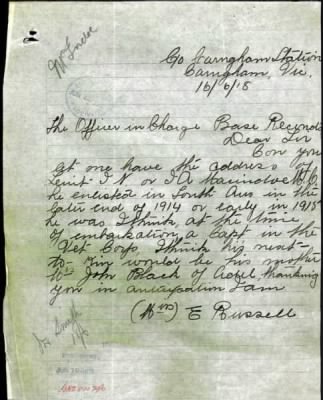 C/o Carngham Station
Carngham, Vic.
16/6/18
The Officer in Charge Base Records
Dear Sir
Can you
let me have the address of
Lieut I N or J A
he enlisted in South Aus in the
later end of 1914 or early in 1915
he was I think, at the time
of embarkation, a Capt in the
Vet Corps I think his next-
to-kin would be his mother
Mrs John Black of thanking
you in anticipation I am
(Mrs) E Russell